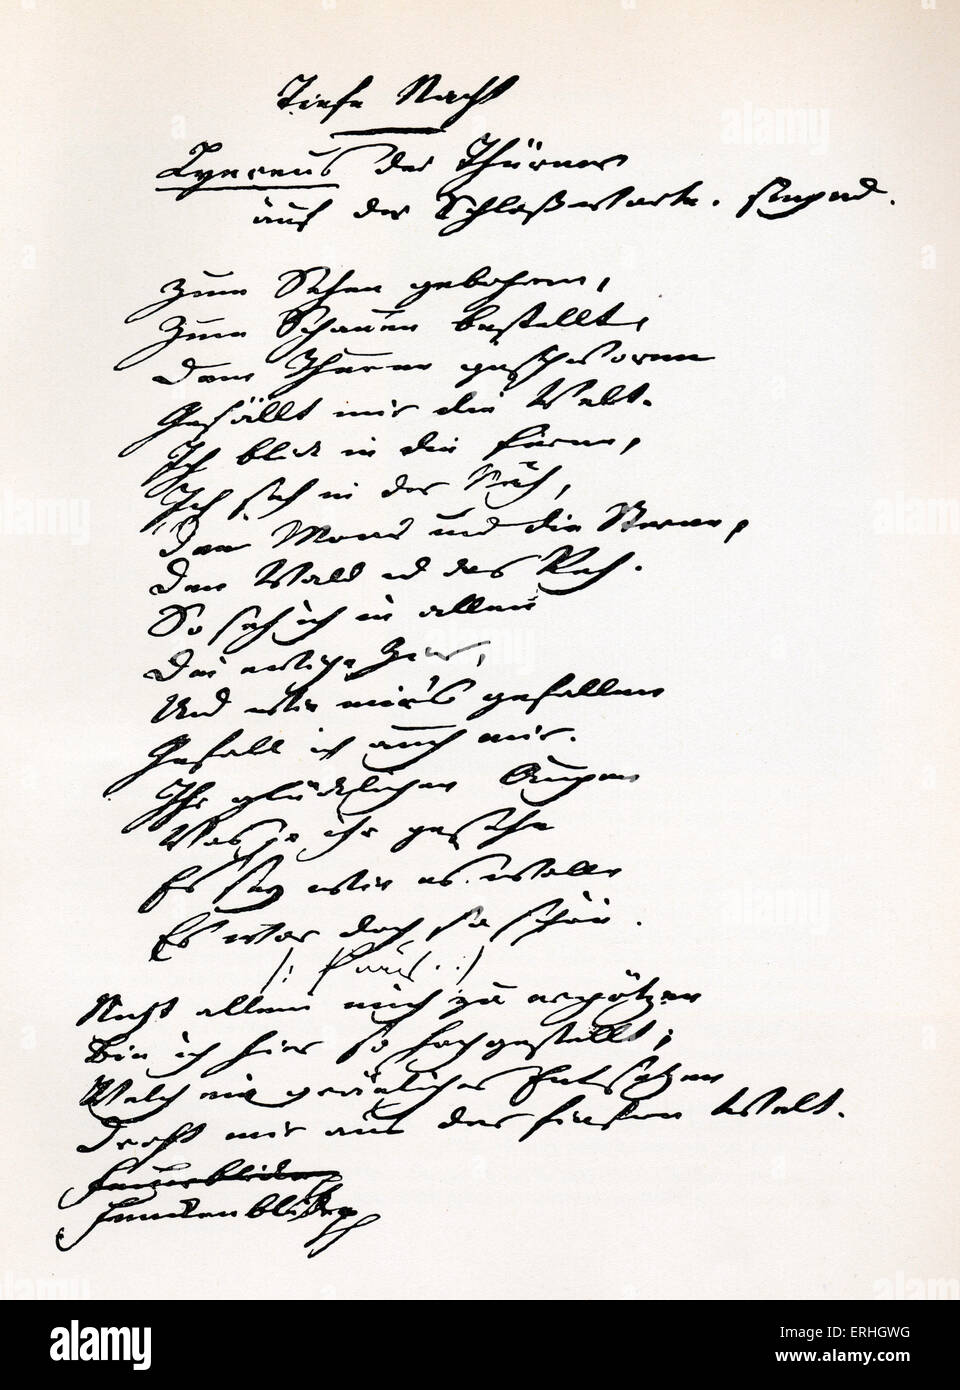 Tiefe Nacht
Lynceus der Thürmer
auf der Schloßwarte. singend.
Zum Sehen gebohren,
Zum Schauen bestellt,
Dem Thurme geschworen
Gefällt mir die Welt.
Ich blick in die Ferne,
Ich seh in der Näh,
Den Mond und die Sterne,
Den Wald u das Reh.
So seh ich in allen
Die ewige Zier,
Und wie mir's gefallen
Gefall ich auch mir.
Ihr glücklichen Augen
Was je ihr gesehn
Es sey wie es wolle
Es war doch so schön.
/: Paus. :/
Nicht allein mich zu ergötzen
Bin ich hier so hochgestellt;
Welch ein greuliches Entsetzen
Droht mir aus der finstern Welt.
Funckenblicke
alamy
Image ID: ERHGWG
www.alamy.com